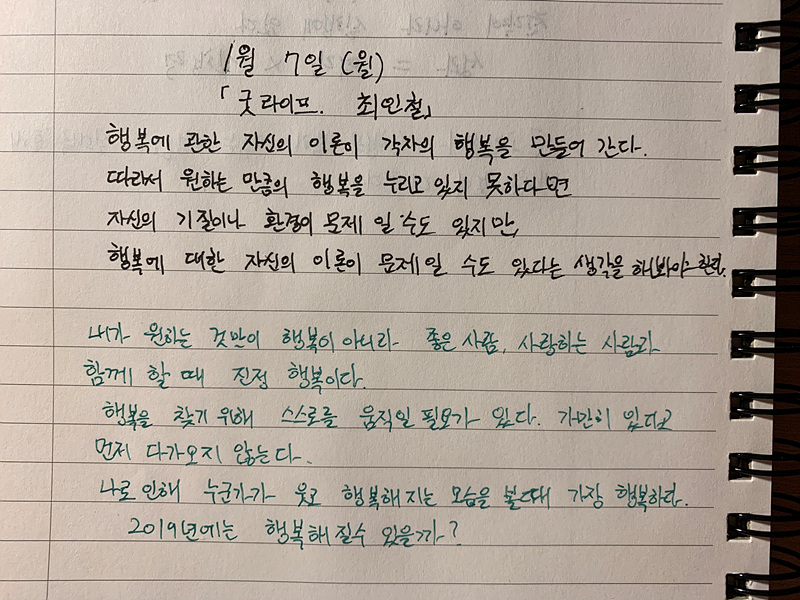 1월 7일 (월)
「굿라이프. 최인철」
행복에 관한 자신의 이론이 각자의 행복을 만들어 간다.
따라서 원하는 만큼의 행복을 누리고 있지 못하다면
자신의 기질이나 환경이 문제 일 수도 있지만,
행복에 대한 자신의 이론이 문제일 수도 있다는 생각을 해봐야 한다.
내가 원하는 것만이 행복이 아니라 좋은 사람, 사랑하는 사람과
함께 할 때 진정 행복이다.
행복을 찾기 위해 스스로를 움직일 필요가 있다. 가만히 있다고
먼저 다가오지 않는다.
나로 인해 누군가가 웃고 행복해 지는 모습을 볼때 가장 행복하다.
2019년에는 행복해 질수 있을까?